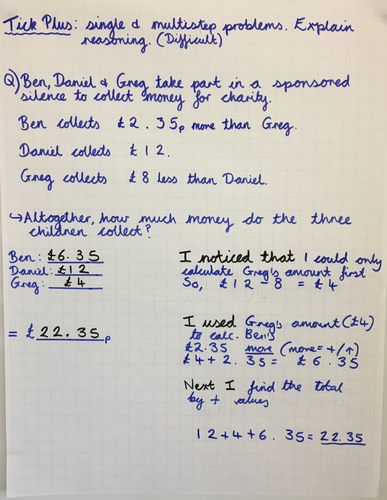 Tick Plus: single & multistep problems. Explain
reasoning. (Difficult)
Q) Ben, Daniel & Greg take part in a sponsored
silence to collect money for charity.
Ben collects £2.35p more than Greg.
Daniel collects £12.
Greg collects £8 less than Daniel.
↳ Altogether, how much money do the three
children collect?
Ben: £6.35
Daniel: £12
Greg: £4
= £22.35p
I noticed that I could only
calculate Greg's amount first
So, £12 - 8 = £4
I used Greg's amount (£4)
to calc. Ben's
£2.35 more (more = +/↑)
£4 + 2.35 = £6.35
Next I find the total
by + values
12+4+6.35 = 22.35